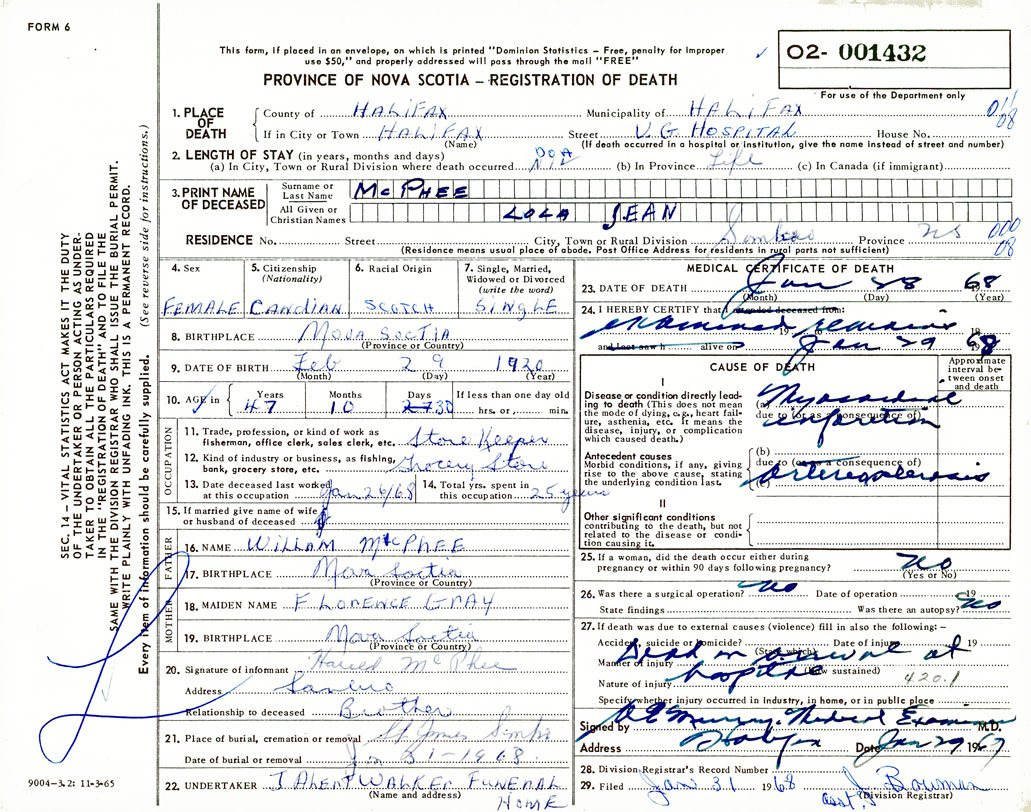 FORM 6
This form, if placed in an envelope, on which is printed "Dominion Statistics – Free, penalty for improper
use $50," and properly addressed will pass through the mail "FREE"
02- 001432
For use of the Department only
PROVINCE OF NOVA SCOTIA – REGISTRATION OF DEATH
SEC. 14 – VITAL STATISTICS ACT MAKES IT THE DUTY
OF THE UNDERTAKER OR PERSON ACTING AS UNDER-
TAKER TO OBTAIN ALL THE PARTICULARS REQUIRED
IN THE "REGISTRATION OF DEATH" AND TO FILE THE
SAME WITH THE DIVISION REGISTRAR WHO SHALL ISSUE THE BURIAL PERMIT.
WRITE PLAINLY WITH UNFADING INK. THIS IS A PERMANENT RECORD.
Every item of information should be carefully supplied. (See reverse side for instructions.)
1. PLACE OF DEATH
County of HALIFAX Municipality of HALIFAX 011 08
If in City or Town HALIFAX Street V.G. HOSPITAL House No.
(Name) (If death occurred in a hospital or institution, give the name instead of street and number)
2. LENGTH OF STAY (in years, months and days) DOA
(a) In City, Town or Rural Division where death occurred NIL (b) In Province Life (c) In Canada (if immigrant)
3. PRINT NAME OF DECEASED
Surname or Last Name McPHEE
All Given or Christian Names LOLA JEAN
RESIDENCE No. Street City, Town or Rural Division Sambro Province NS 000 08
(Residence means usual place of abode. Post Office Address for residents in rural parts not sufficient)
4. Sex FEMALE
5. Citizenship (Nationality) CANDIAN
6. Racial Origin SCOTCH
7. Single, Married, Widowed or Divorced (write the word) SINGLE
8. BIRTHPLACE NOVA SOCTIA
(Province or Country)
9. DATE OF BIRTH Feb 29 1920
(Month) (Day) (Year)
10. AGE in Years 47 Months 10 Days 27 30 If less than one day hrs. or min.
OCCUPATION
11. Trade, profession, or kind of work as fisherman, office clerk, sales clerk, etc. Store Keeper
12. Kind of industry or business, as fishing, bank, grocery store, etc. Grocery Store
13. Date deceased last worked at this occupation Jan 26/68
14. Total yrs. spent in this occupation 25 years
15. If married give name of wife or husband of deceased
FATHER
16. NAME WILLIAM McPHEE
17. BIRTHPLACE Nova Soctia
(Province or Country)
MOTHER
18. MAIDEN NAME FLORENCE GRAY
19. BIRTHPLACE Nova Soctia
(Province or Country)
20. Signature of informant McPhee
Address Sambro
Relationship to deceased Brother
21. Place of burial, cremation or removal St James Sambro
Date of burial or removal Jan 31-1968
22. UNDERTAKER J ALBERT WALKER FUNERAL HOME
(Name and address)
9004-3.2: 11-3-65
MEDICAL CERTIFICATE OF DEATH
23. DATE OF DEATH Jan 28 68
(Month) (Day) (Year)
24. I HEREBY CERTIFY that I attended deceased from: 19
examined remains 19
and last saw h alive on Jan 29 1968
CAUSE OF DEATH
Approximate interval between onset and death
I
Disease or condition directly lead-
ing to death (This does not mean
the mode of dying, e.g., heart fail-
ure, asthenia, etc. It means the
disease, injury, or complication
which caused death.)
(a) Myocardial
due to (or as a consequence of)
infarction
Antecedent causes
Morbid conditions, if any, giving
rise to the above cause, stating
the underlying condition last.
(b)
due to (or as a consequence of)
(c) Arteriosclerosis
II
Other significant conditions
contributing to the death, but not
related to the disease or condi-
tion causing it.
25. If a woman, did the death occur either during
pregnancy or within 90 days following pregnancy? No
(Yes or No)
26. Was there a surgical operation? No Date of operation 19
State findings Was there an autopsy? No
27. If death was due to external causes (violence) fill in also the following:–
Accident, suicide or homicide? (State which) Date of injury 19
Dead on arrival at
Manner of injury (How sustained)
hospital
Nature of injury 420.1
Specify whether injury occurred in Industry, in home, or in public place
Signed by Murray. Medical Examiner M.D.
Address Halifax Date Jan 29 1967
28. Division Registrar's Record Number
29. Filed Jan 31 1968 J. Bowman
asst. (Division Registrar)